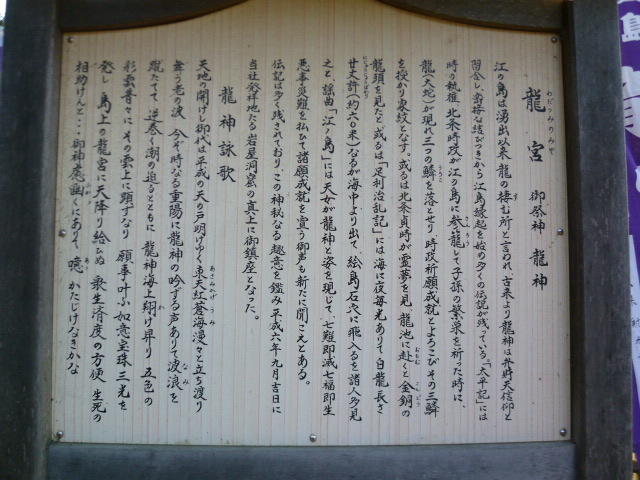 龍宮 御祭神 龍神
わだつみのみや
江の島は湧出以来、龍の棲む所と言われ、古来より龍神は弁財天信仰と
習合し、密接な結びつきから江島縁起を始め多くの伝説が残っている。「太平記」には
時の執権、北条時政が江の島に参籠して子孫の繁栄を祈った時に、
龍(大蛇)が現れ三つの鱗を落とせり、時政祈願成就とよろこび、その三鱗
を授かり家紋となす。或るは北条貞時が霊夢を見、龍池に赴くと金銅の
龍頭を見たと、或るは「足利治乱記」には海に夜毎光ありて白龍、長さ
廿丈許(約六〇米)なるが海中より出て、絵島石穴に飛入るを諸人多見
之と、謡曲「江ノ島」には天女が龍神と姿を現じて、七難即滅七福即生
悪事災難を払ひて諸願成就を宣う御声も新たに聞こえとある。
伝記は多く残されており、この神秘なる趣意を鑑み平成六年九月吉日に
当社発祥地たる岩屋洞窟の真上に御鎮座となった。
龍神詠歌
天地の開けし御代は平成の天の戸明けゆく東天紅蒼海漫々と立ち渡り
舞う老の波 今ぞ時なる重陽に龍神の吟ずる声ありて波浪を
蹴たてて、逆巻く潮の迫るとともに 龍神海上翔け昇り 五色の
彩雲普々に その雲上に顕ずなり 願事叶ふ如意宝珠 三光を
発し 島上の龍宮に天降り給ひぬ 衆生済度の方便 生死の
相助けんと・・・御神慮幽くにあり、噫、かたじけなきかな